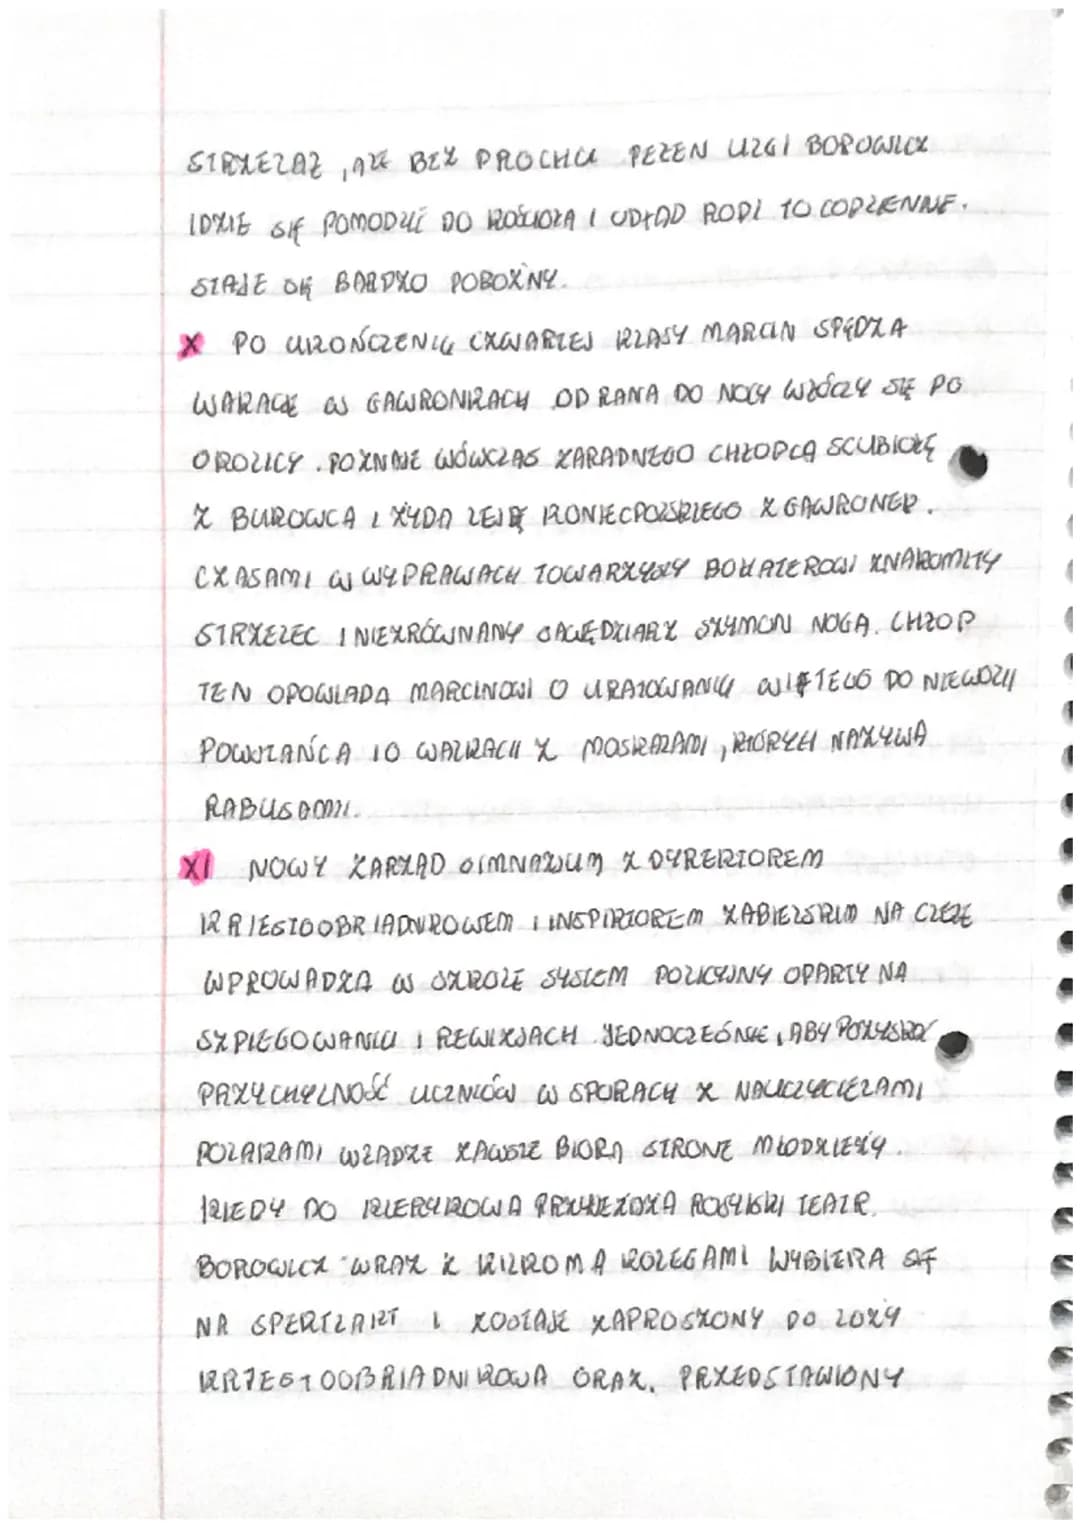 STRZELAŁ, ALE BEZ PROCHU. PEŁEN ULGI BOROWICZ
IDZIE SIĘ POMODLIĆ DO KOŚCIOŁA I ODTĄD ROBI TO CODZIENNIE.
STAJE SIĘ BARDZO POBOŻNY.
X PO UKOŃCZENIU CZWARTEJ KLASY MARCIN SPĘDZA
WAKACJE W GAWRONKACH. OD RANA DO NOCY WŁÓCZY SIĘ PO
OKOLICY. POZNAJE WÓWCZAS ZARADNEGO CHŁOPCA SCUBIOŁĘ
Z BUROWCA I ŻYDA LEJBĘ KONIECPOLSKIEGO Z GAWRONEK.
CZASAMI W WYPRAWACH TOWARZYSZY BOHATEROWI ZNAKOMITY
STRZELEC I NIEZRÓWNANY GAWĘDZIARZ SZYMON NOGA. CHŁOP
TEN OPOWIADA MARCINOWI O URATOWANIU WZIĘTEGO DO NIEWOLI
POWSTAŃCA I O WALKACH Z MOSKALAMI, KTÓRYCH NAZYWA
RABUSAMI.
XI NOWY ZARZĄD GIMNAZJUM Z DYREKTOREM
KRIESTOOBRIADNIKOWEM I INSPEKTOREM ZABIELSKIM NA CZELE
WPROWADZA W SZKOLE SYSTEM POLICYJNY OPARTY NA
SZPIEGOWANIU I REWIZJACH. JEDNOCZEŚNIE, ABY POZYSKAĆ
PRZYCHYLNOŚĆ UCZNIÓW W SPORACH Z NAUCZYCIELAMI
POLAKAMI WŁADZE ZAWSZE BIORĄ STRONE MŁODZIEŻY.
KIEDY DO KLERYKOWA PRZYJEŻDŻA ROSYJSKI TEATR,
BOROWICZ WRAZ Z KILKOMA KOLEGAMI WYBIERA SIĘ
NA SPEKTLAKT I ZOSTAJE ZAPROSZONY DO LOŻY
KRJESTOOBRIADNIKOWA ORAZ, PRZEDSTAWIONY